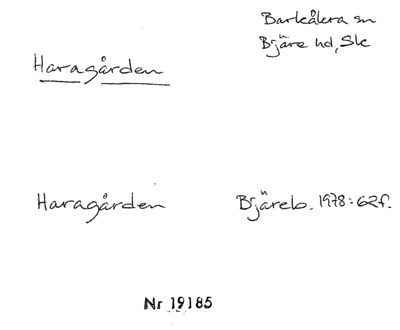 Barkåkra sn
Bjäre hd, Sk
Haragården
Haragården Bjäreb. 1978:62f.
Nr 19185